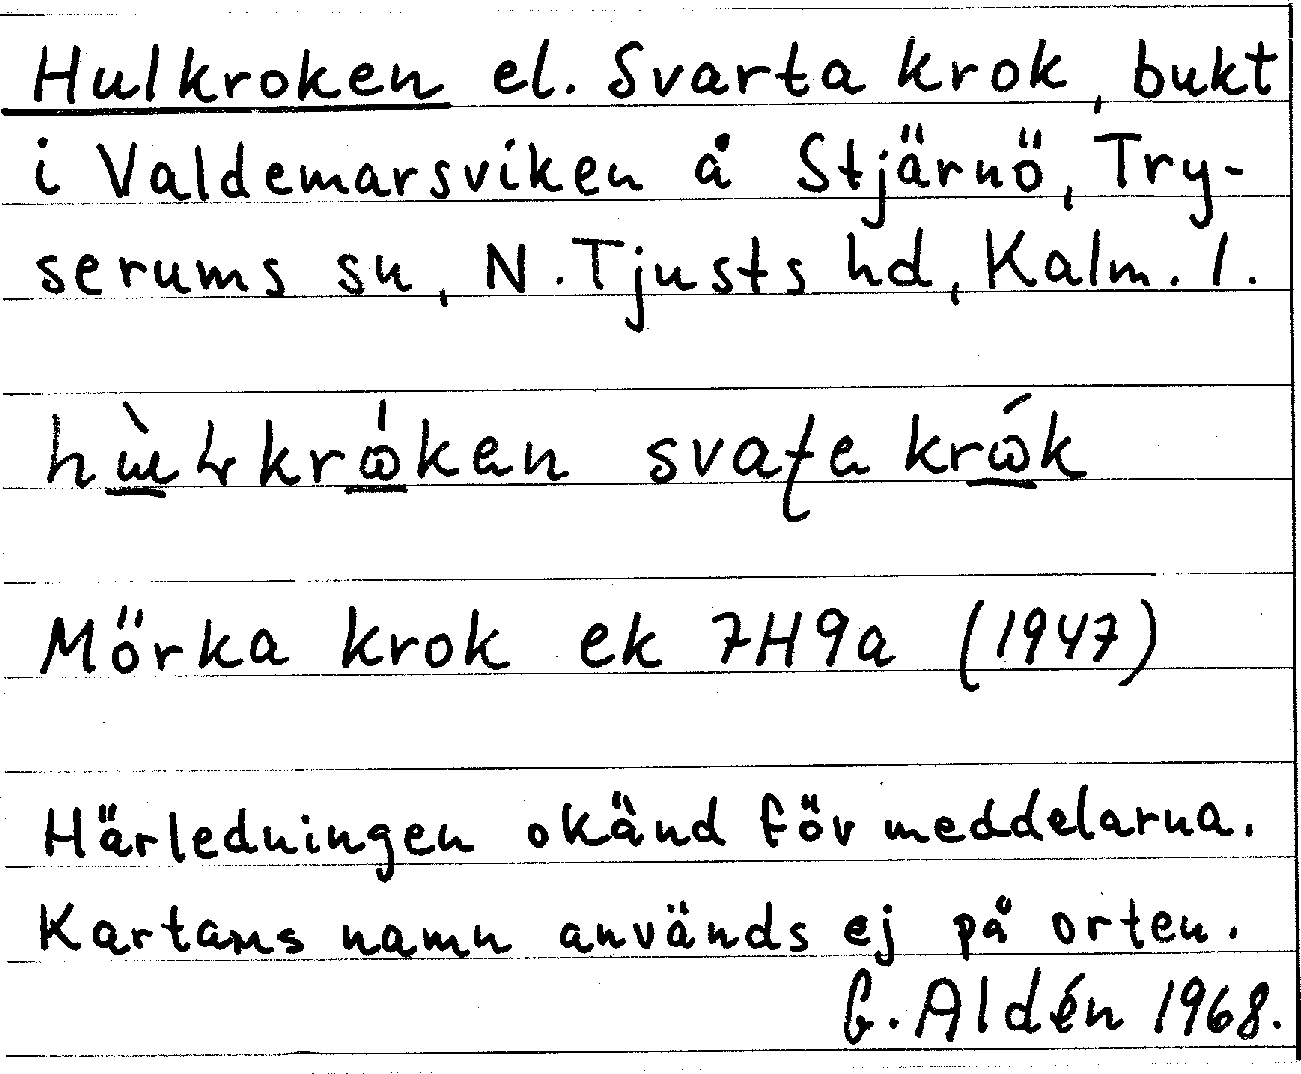 Hulkroken el. Svarta krok, bukt
i Valdemarsviken å Stjärnö, Try-
serums sn, N. Tjusts hd, Kalm. l.
svaʈa
Mörka krok ek 7H9a (1947)
Härledningen okänd för meddelarna.
Kartans namn används ej på orten.
G. Aldén 1968.